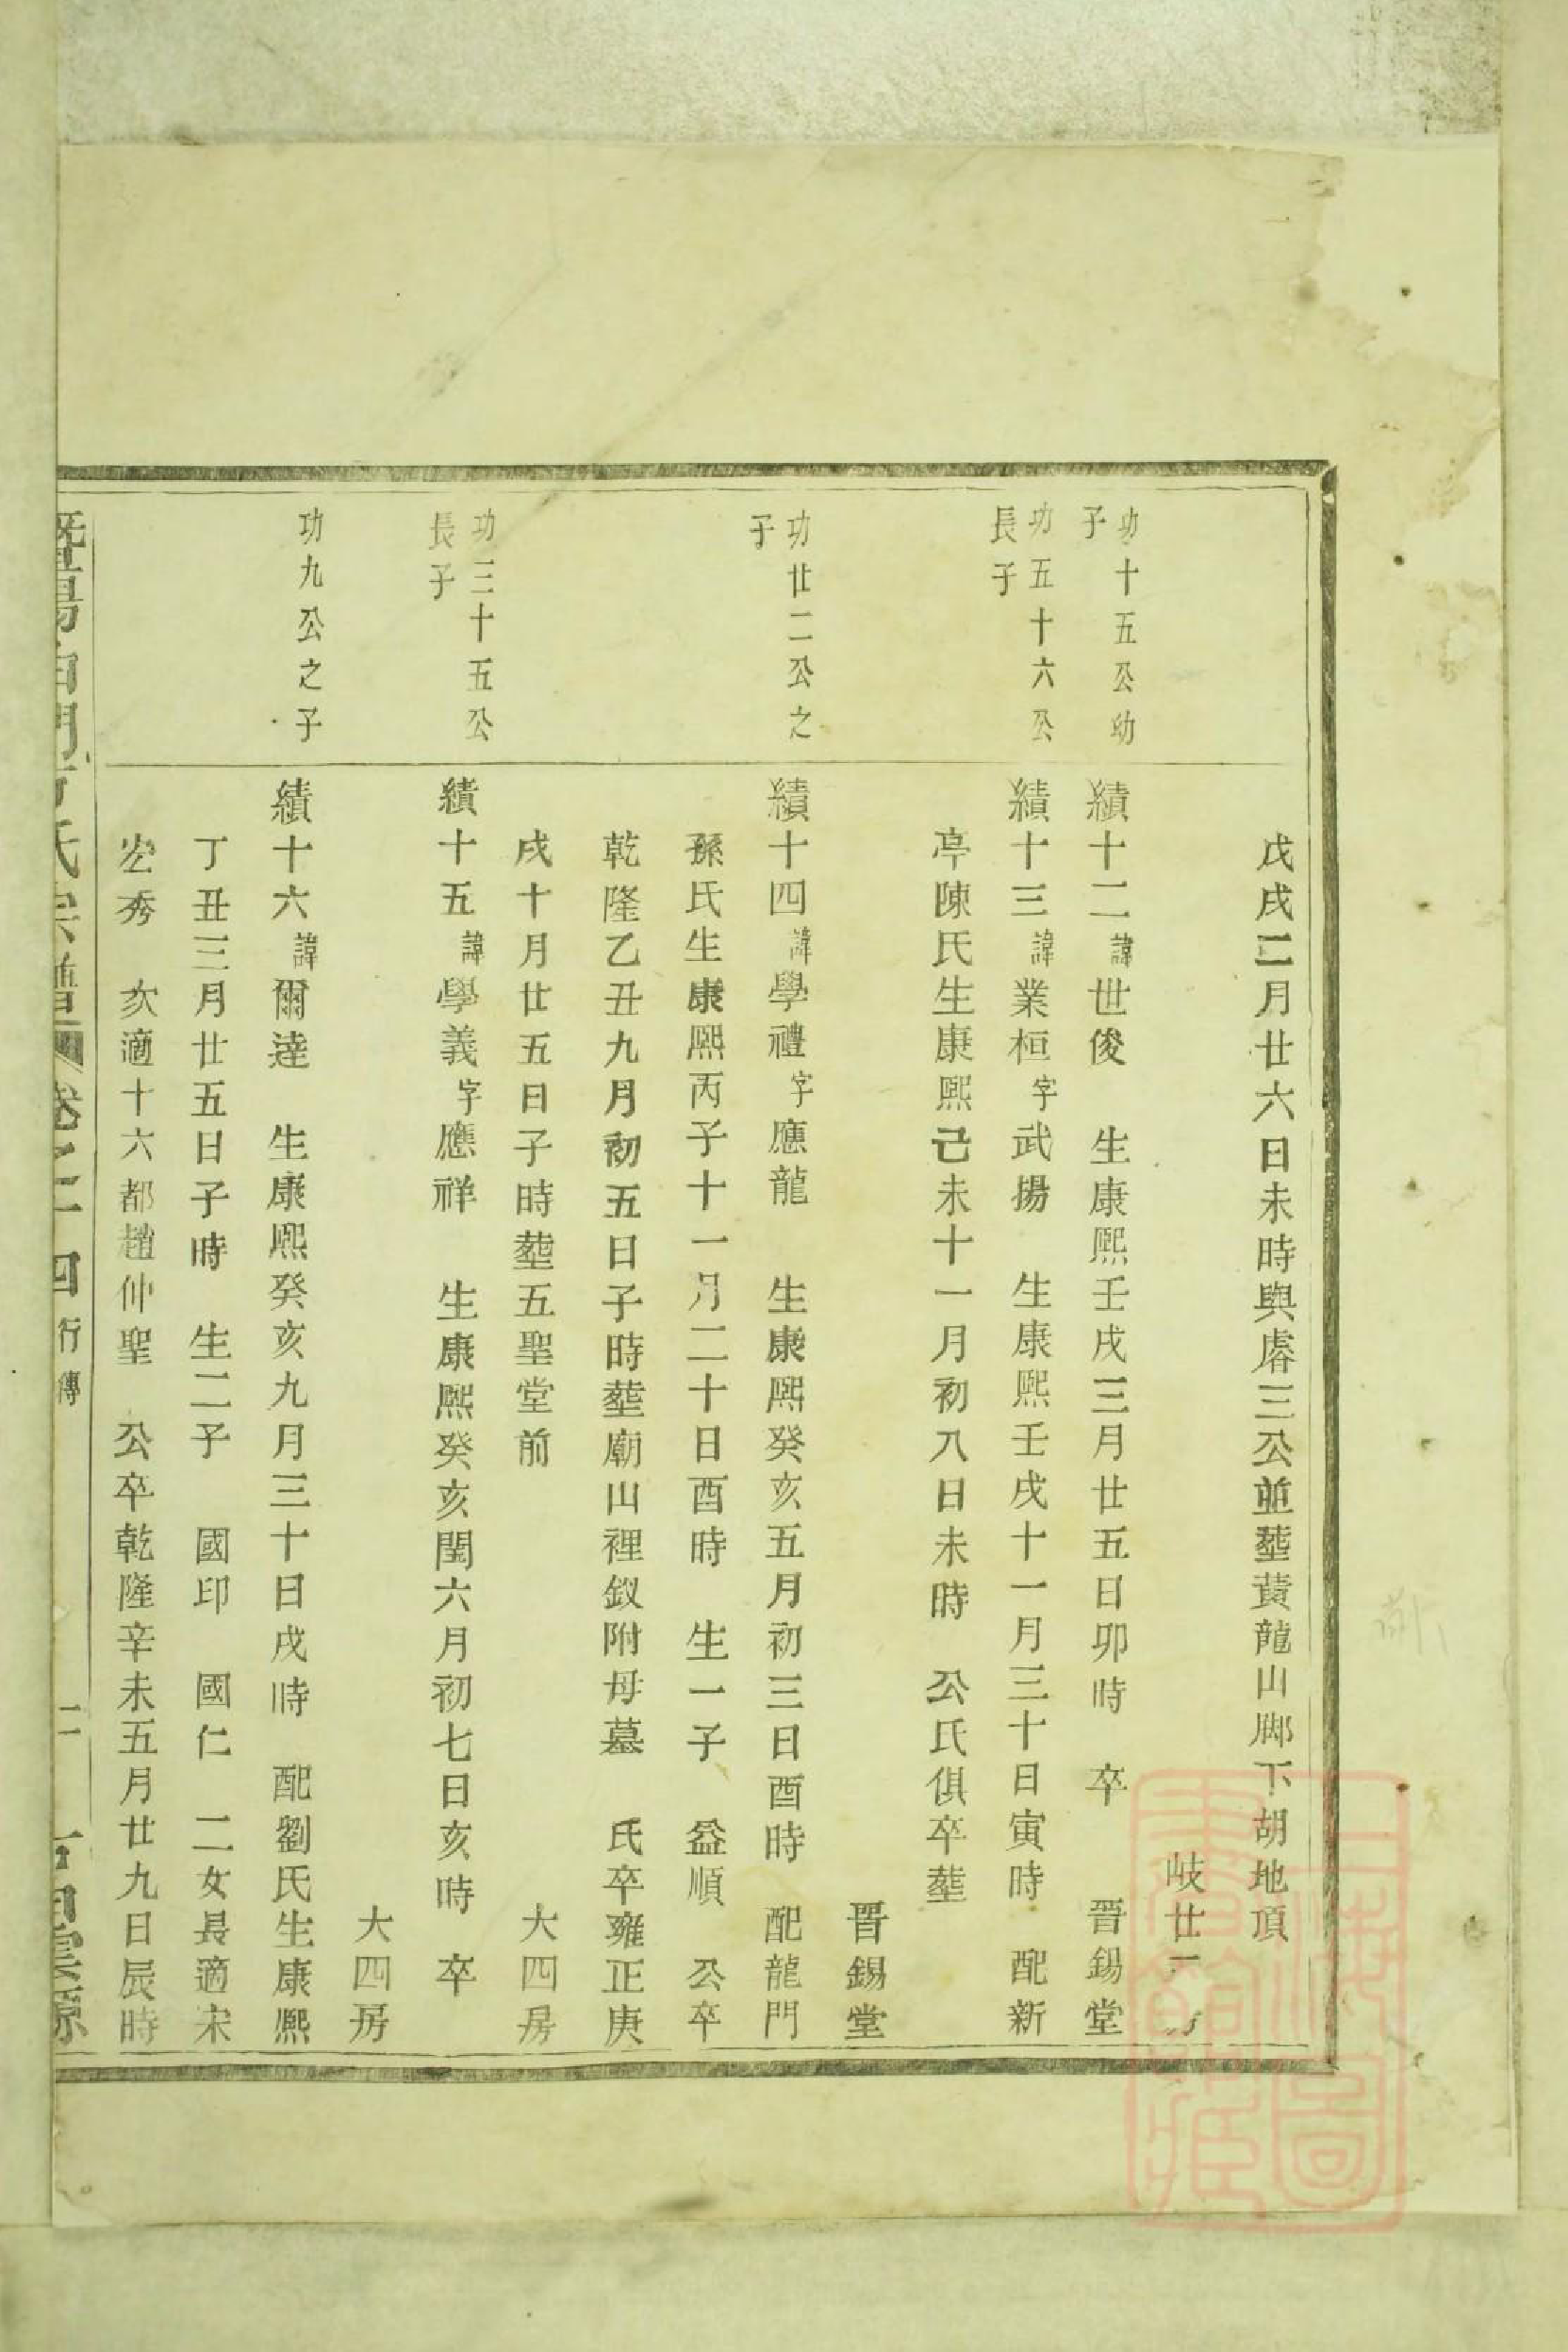 戊戌三月廿六日未時與睿三公並塟黃龍山脚下胡地頂
岐廿
功十五公幼
子
績十二諱世俊　生康熙壬戌三月廿五日卯時　卒　晉錫堂
功五十六公
長子
績十三諱業桓字武揚　生康熙壬戌十一月三十日寅時　配新
亭陳氏生康熙己未十一月初八日未時　公氏俱卒塟
晉錫堂
功廿二公之
子
績十四諱學禮字應龍　生康熙癸亥五月初三日酉時　配龍門
孫氏生康熙丙子十一月二十日酉時　生一子　益順　公卒
乾隆乙丑九月初五日子時塟廟山裡釵附母墓　氏卒雍正庚
戌十月廿五日子時塟五聖堂前　大四房
功三十五公
長子
績十五諱學義字應祥　生康熙癸亥閏六月初七日亥時　卒
大四房
功九公之子
績十六諱爾逵　生康熙癸亥九月三十日戌時　配劉氏生康熙
丁丑三月廿五日子時　生二子　國印　國仁　二女長適宋
宏秀　次適十六都趙仲聖　公卒乾隆辛未五月廿九日辰時
氏宗譜　卷之二四　行傳　二
上海圖書館藏